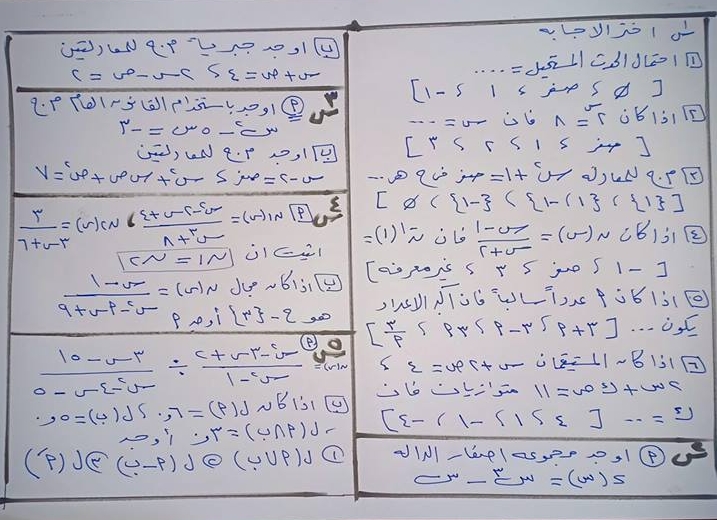 س١ اختر الاجابه
١ احتمال الحدث المستحيل = ....
[ ∅ ، صفر ، ١ ، -١ ]
٢ اذا كان ٢^س = ٨ فان س = ...
[ صفر ، ١ ، ٢ ، ٣ ]
٣ م.ح للمعادله س² + ١ = صفر في ح هى ...
[ {١} ، {-١} ، {١، -١} ، ∅ ]
٤ اذا كان ن(س) = (س - ١)/(س + ٢) فان ن⁻¹(١) =
[ -١ ، صفر ، ٣ ، غير معرفه ]
٥ اذا كان ٢ عدداً سالباً فان اكبر الاعداد
يكون ... [ ٣ + ٢ ، ٣ - ٢ ، ٣٢ ، ٣/٢ ]
٦ اذا كان المستقيمان س + ٢ص = ٤ ،
٢س + ك ص = ١١ متوازيان فان
ك = ... [ ٤ ، ١ ، -١ ، -٤ ]
س٢ (أ) اوجد مجموعه اصفار الداله
د(س) = س³ - س
ب اوجد جبرياً م.ح للمعادلتين
س + ص = ٤ ، ٢س - ص = ٢
س٣ (أ) اوجد باستخدام القانون العام م.ح
س² - ٥س = -٣
ب اوجد م.ح للمعادلتين
س - ٢ = صفر ، س² + س ص + ص² = ٧
س٤ أ ن١(س) = (س² - ٢س + ٤)/(س³ + ٨) ، ن٢(س) = ٣/(٣س + ٦)
اثبت ان ن١ = ن٢
ب اذا كان مجال ن(س) = (س - ١)/(س² - أس + ٩)
هو ح - {٣} أوجد أ
س٥ (أ) ن(س) = (س² - ٣س + ٢)/(س² - ١) ÷ (٣س - ١٥)/(س² - ٤س - ٥)
ب اذا كان ل(أ) = ٦و. ، ل(ب) = ٥و.
، ل(أ∩ب) = ٣و. أوجد
١ ل(أ∪ب) ٢ ل(أ-ب) ٣ ل(أَ)